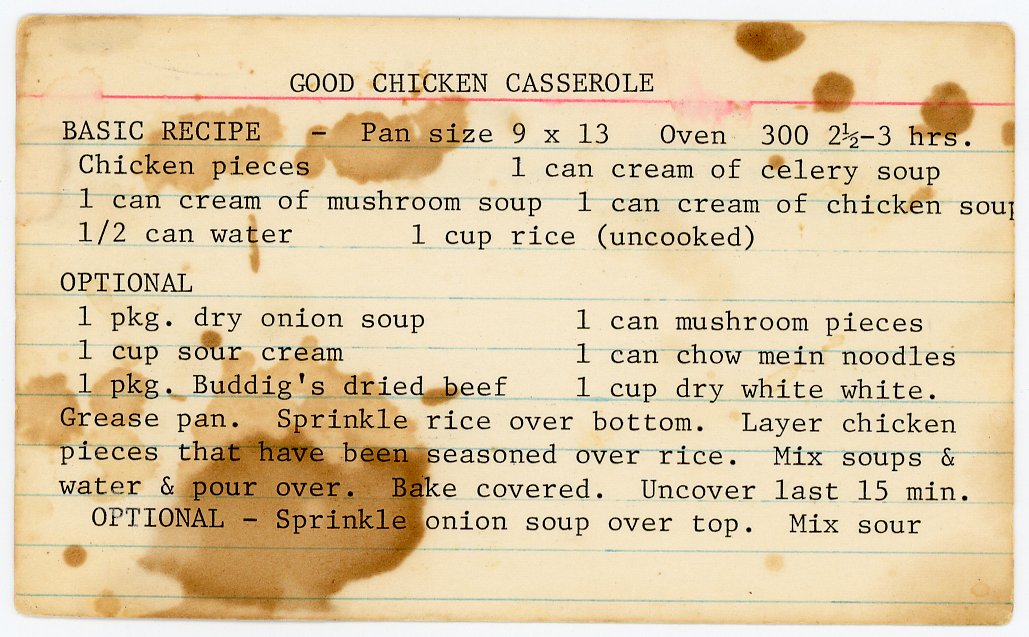 GOOD CHICKEN CASSEROLE
BASIC RECIPE - Pan size 9 x 13 Oven 300 2½-3 hrs.
Chicken pieces 1 can cream of celery soup
1 can cream of mushroom soup 1 can cream of chicken soup
1/2 can water 1 cup rice (uncooked)
OPTIONAL
1 pkg. dry onion soup 1 can mushroom pieces
1 cup sour cream 1 can chow mein noodles
1 pkg. Buddig's dried beef 1 cup dry white white.
Grease pan. Sprinkle rice over bottom. Layer chicken
pieces that have been seasoned over rice. Mix soups &
water & pour over. Bake covered. Uncover last 15 min.
OPTIONAL - Sprinkle onion soup over top. Mix sour